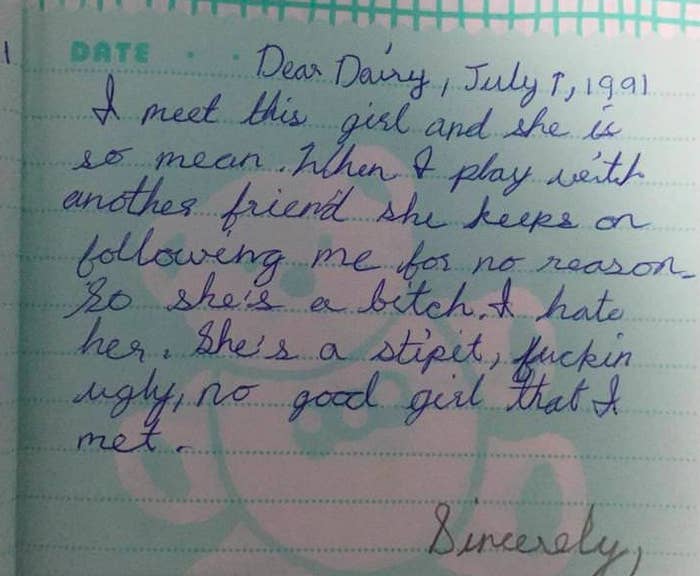 1
DATE . .
Dear Dairy, July 1, 1991
I meet this girl and she is
so mean. When I play with
another friend she keeps on
following me for no reason.
So she's a bitch. I hate
her. She's a stipit, fuckin
ugly, no good girl that I
met.
Sincerely,